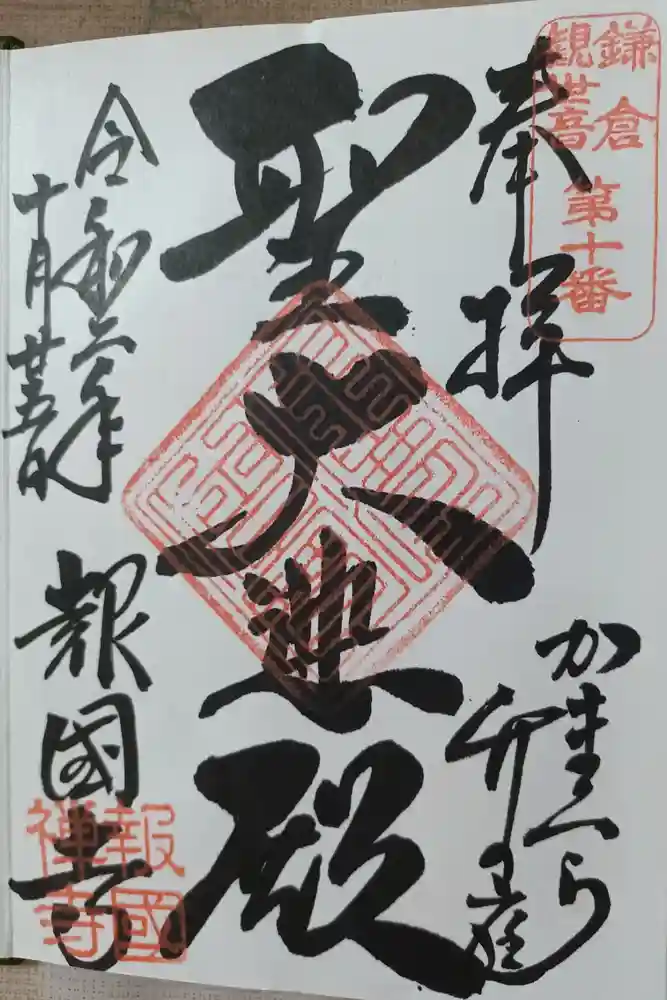 鎌倉
觀世音
第十番
奉拝
かまくら
竹の庭
聖大悲殿
令和 年
十月廿五日
報國寺
報國
禅寺